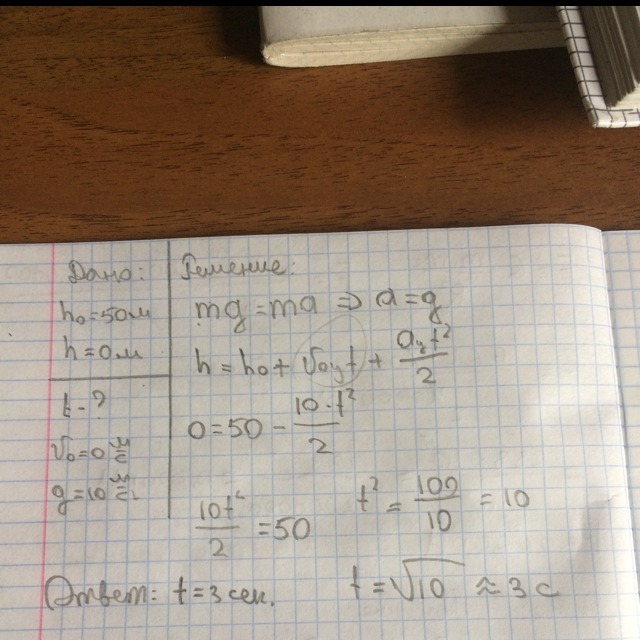 Дано:
h₀=50м
h=0м
t-?
v₀=0 м/с
g=10 м/с²
Решение:
mg=ma ⇒ a=g
h=h₀+v₀yt+ayt²/2
0=50-10·t²/2
10t²/2=50
t²=100/10=10
t=√10≈3с
Ответ: t=3сек.